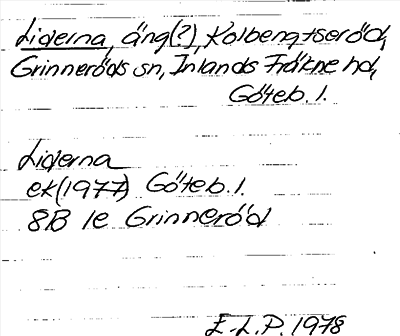 Liderna, äng(?), Kolbengtseröd,
Grinneröds sn, Inlands Fräkne hd,
Göteb. l.
Liderna
ek (1977) Göteb. l.
8B 1e Grinneröd
E-L.P. 1978